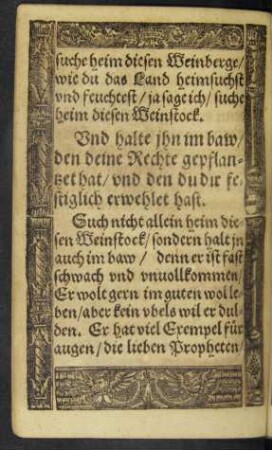 suche heim diesen Weinberge/
wie du das Land heimsuchst
vnd feuchtest/ ja sage ich/ suche
heim diesen Weinstock.
Vnd halte jhn im baw/
den deine Rechte gepflan-
tzet hat/ vnd den du dir fe-
stiglich erwehlet hast.
Such nicht allein heim die-
sen Weinstock/ sondern halt jn
auch im baw/ denn er ist fast
schwach vnd vnuollkommen/
Er wolt gern im guten wol le-
ben/ aber kein vbels wil er dul-
den. Er hat viel Exempel für
augen/ die lieben Propheten/